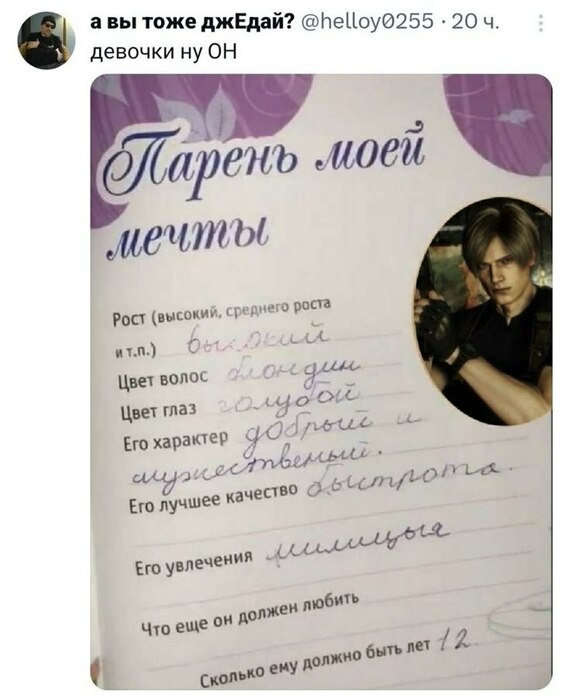 а вы тоже джЕдай? @helloy0255 · 20 ч.
девочки ну ОН
Парень моей
мечты
Рост (высокий, среднего роста
и т.п.) высокий
Цвет волос блондин
Цвет глаз голубой
Его характер добрый и
мужественый.
Его лучшее качество быстрота.
Его увлечения милицыя
Что еще он должен любить
Сколько ему должно быть лет 12.